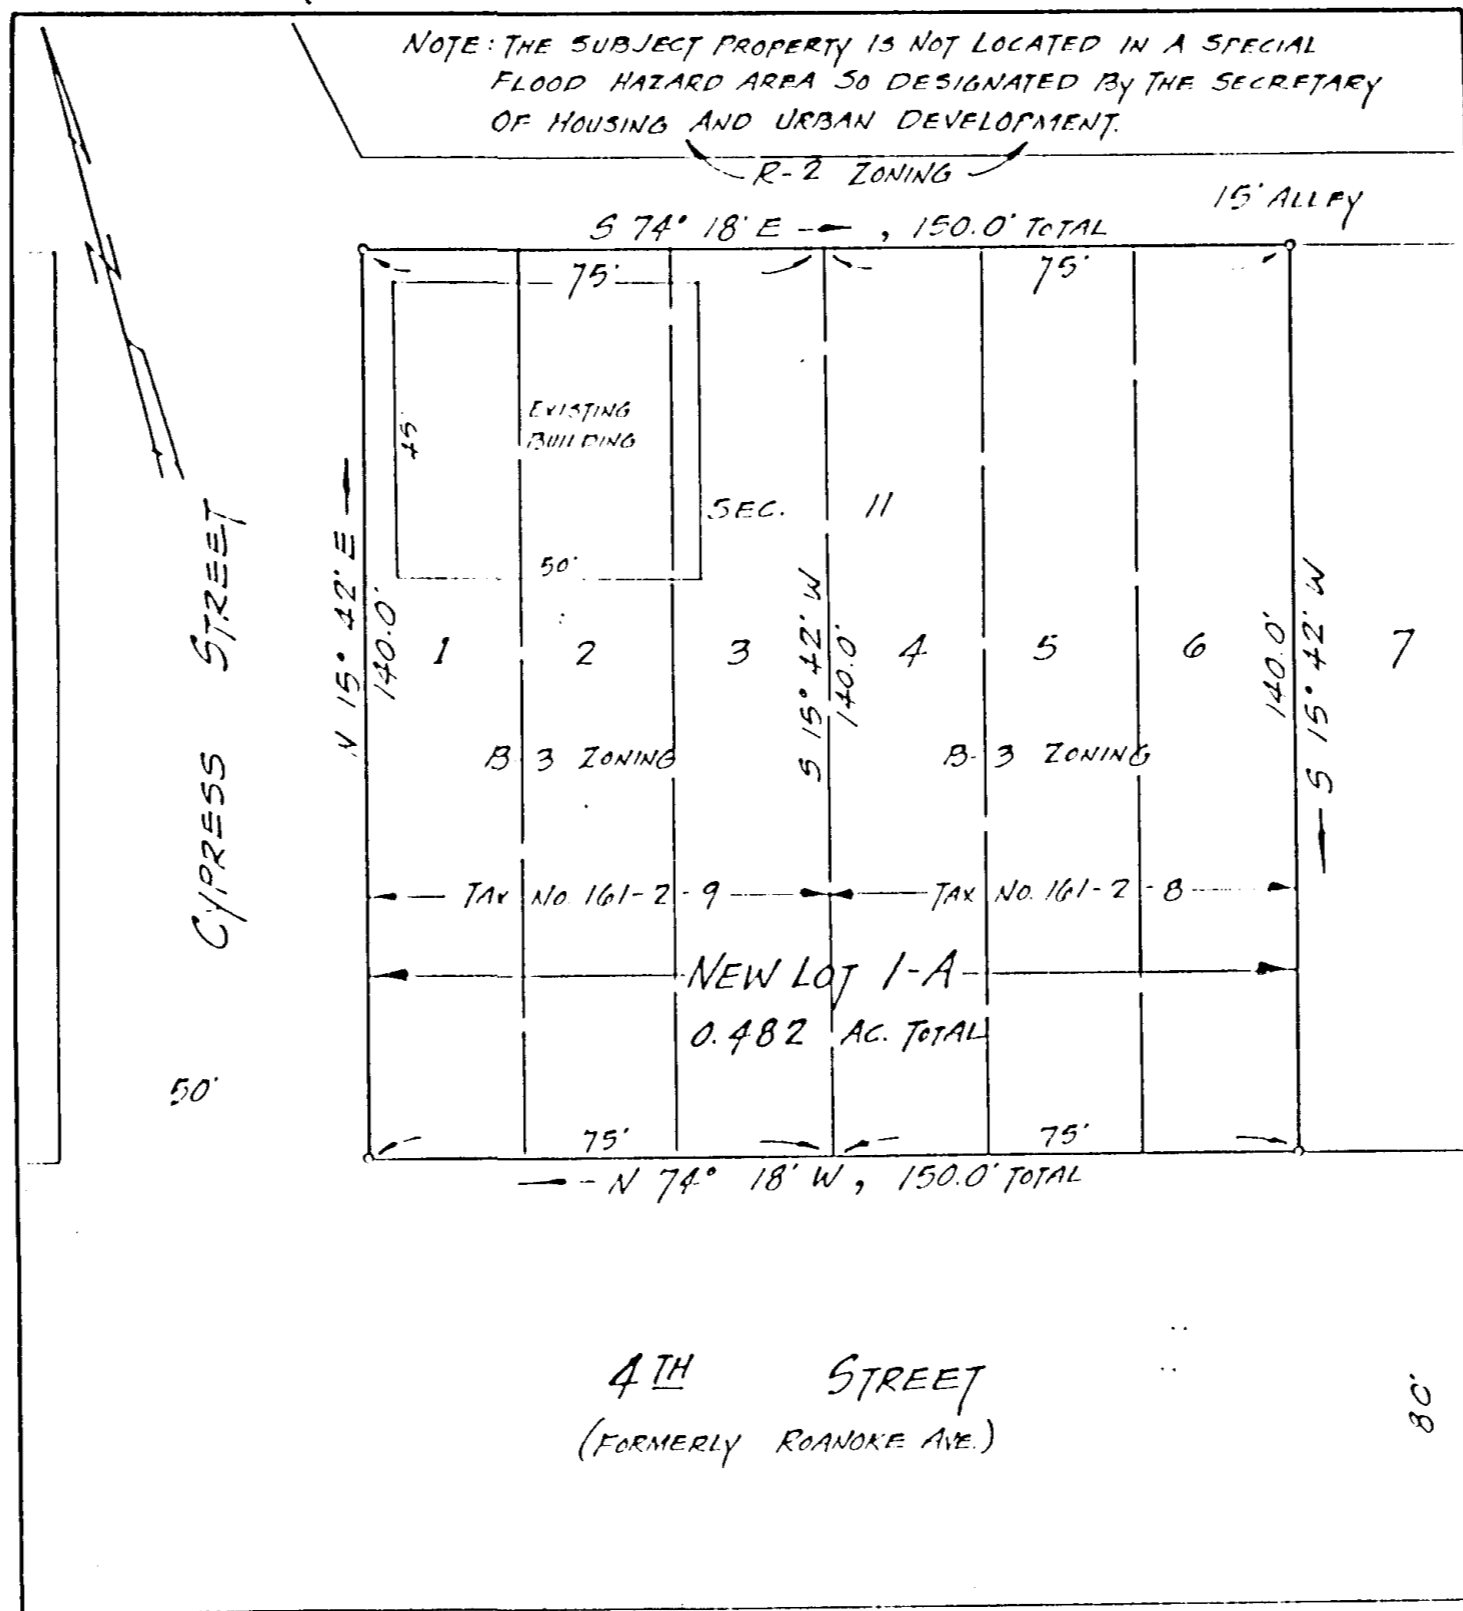 NOTE: THE SUBJECT PROPERTY IS NOT LOCATED IN A SPECIAL
FLOOD HAZARD AREA SO DESIGNATED BY THE SECRETARY
OF HOUSING AND URBAN DEVELOPMENT.
R-2 ZONING
15' ALLEY
S 74° 18' E , 150.0' TOTAL
75'
75'
EXISTING
BUILDING
45'
50'
SEC. 11
N 15° 42' E
140.0'
S 15° 42' W
140.0'
140.0'
S 15° 42' W
1 2 3 4 5 6 7
B-3 ZONING
B-3 ZONING
CYPRESS STREET
TAX NO. 161-2-9
TAX NO. 161-2-8
NEW LOT 1-A
0.482 AC. TOTAL
50'
75'
75'
N 74° 18' W, 150.0' TOTAL
4TH STREET
(FORMERLY ROANOKE AVE.)
80'